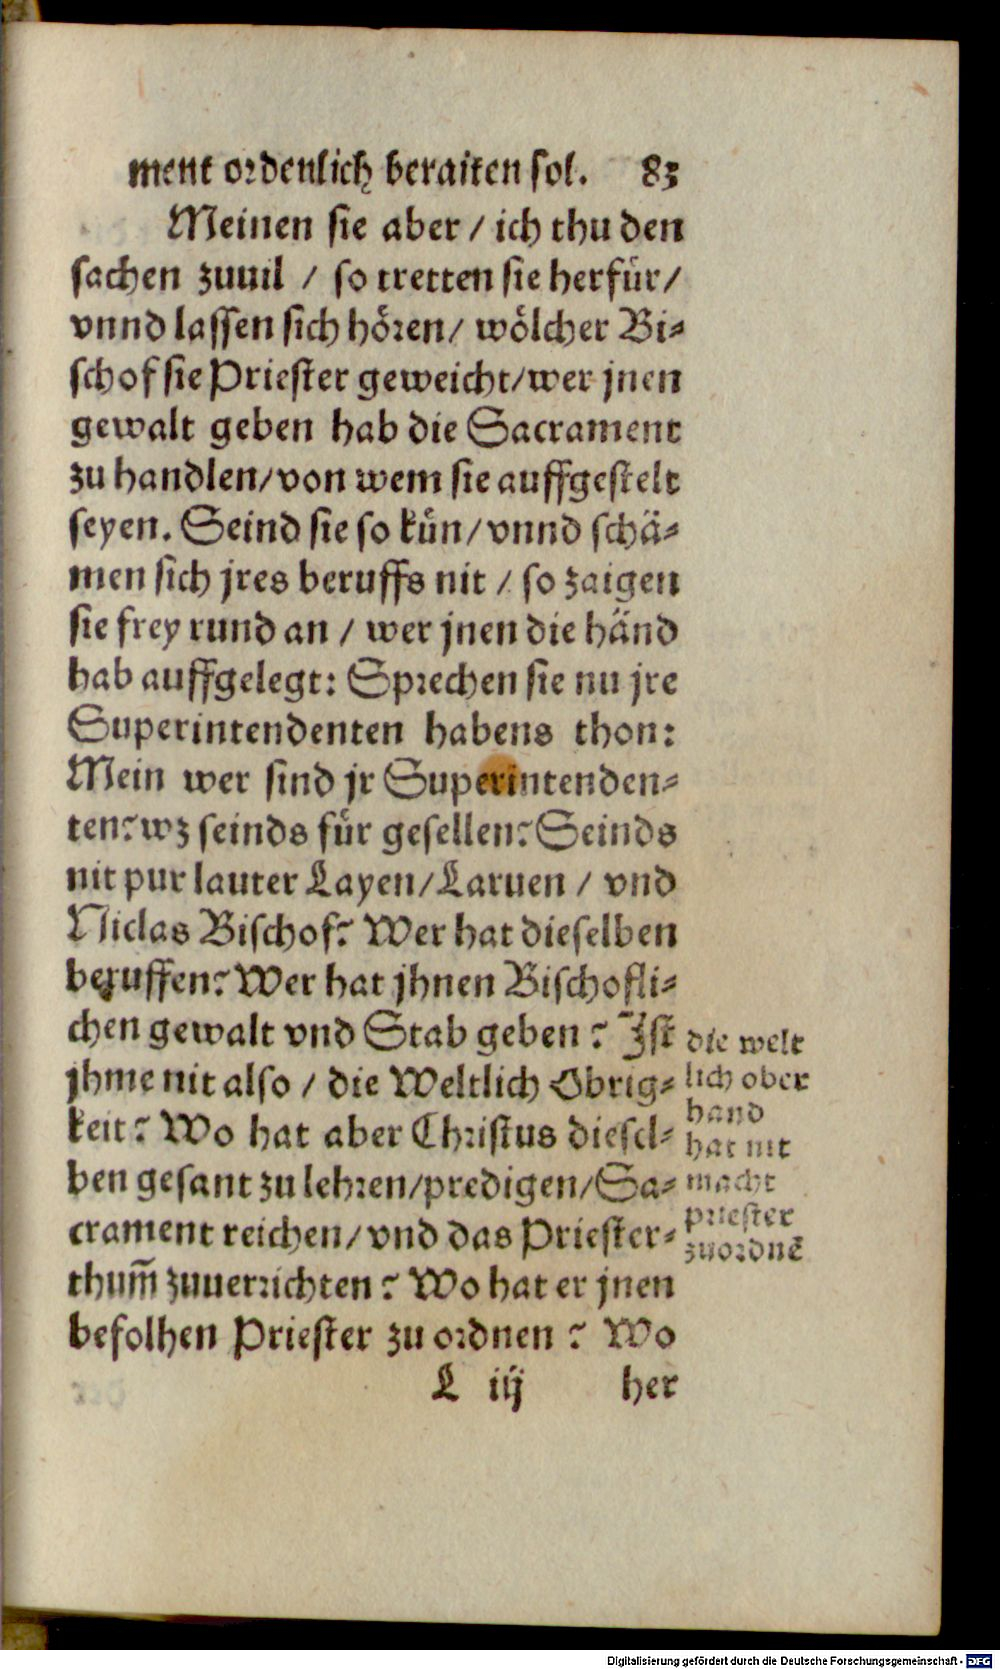 ment ordenlich beraiten sol. 83
Meinen sie aber / ich thu den
sachen zuuil / so tretten sie herfür /
vnnd lassen sich hören / wölcher Bi⸗
schof sie Priester geweicht / wer jnen
gewalt geben hab die Sacrament
zu handlen / von wem sie auffgestelt
seyen. Seind sie so kün / vnnd schä⸗
men sich jres beruffs nit / so zaigen
sie frey rund an / wer jnen die händ
hab auffgelegt: Sprechen sie nu jre
Superintendenten habens thon:
Mein wer sind jr Superintenden⸗
ten? wz seinds für gesellen? Seinds
nit pur lauter Layen / Laruen / vnd
Niclas Bischof? Wer hat dieselben
beruffen? Wer hat jhnen Bischofli⸗
chen gewalt vnd Stab geben? Ist
jhme nit also / die Weltlich Obrig⸗
keit? Wo hat aber Christus diesel⸗
ben gesant zu lehren / predigen / Sa⸗
crament reichen / vnd das Priester⸗
thum̃ zuuerrichten? Wo hat er jnen
befolhen Priester zu ordnen? Wo
L iij her
die welt
lich ober
hand
hat nit
macht
priester
zuordnē
Digitalisierung gefördert durch die Deutsche Forschungsgemeinschaft - DFG